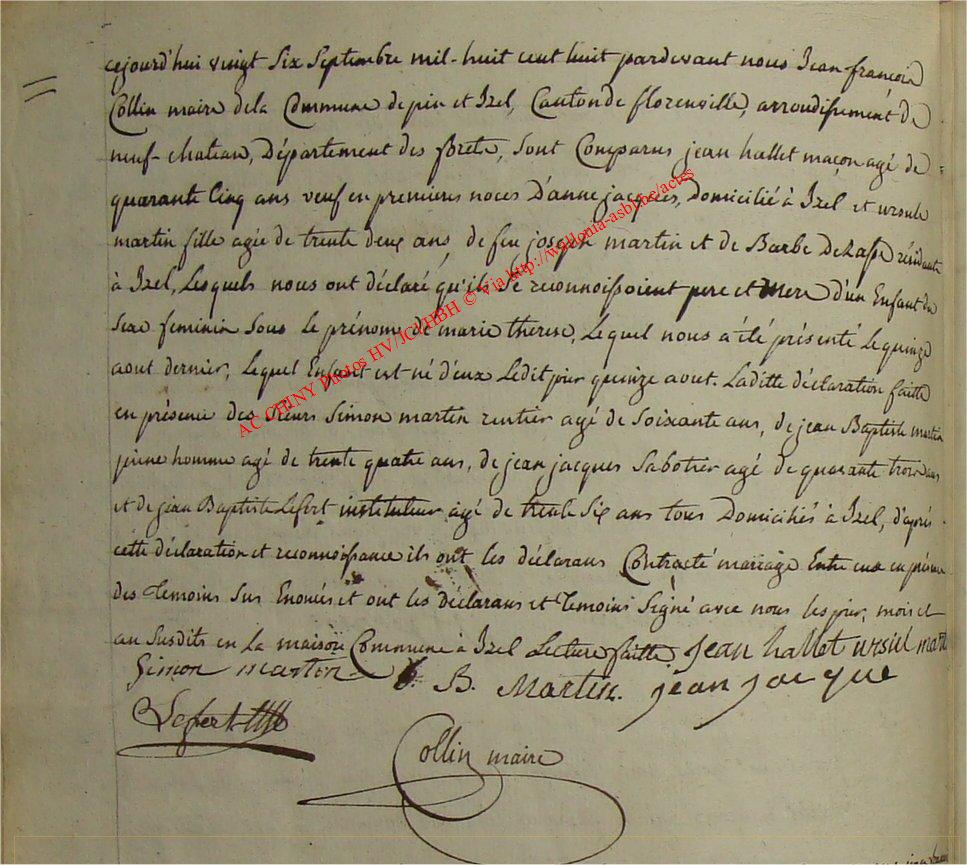 cejourd'hui vingt Six Septembre mil-huit cent huit pardevant nous Jean françois
Collin maire dela Commune de pin et Izel, Canton de florenville, arrondissement de
neuf-chateau, Département des forets, sont Comparus jean hallet maçon agé de
quarante Cinq ans veuf en premieres noces D'anne jacques, Domicilié à Izel et ursule
martin fille agée de trente deux ans, de feu joseph martin et de Barbe résidante
à Izel, Lesquels nous ont déclaré qu'ils se reconnoissoient pere et Mere d'un Enfant du
sexe feminin sous le prénom de marie therese, Lequel nous a été présenté Le quinze
aout dernier, Lequel Enfant est né d'eux Ledit jour quinze aout. Laditte déclaration faitte
en présence des sieurs Simon martin rentier agé de soixante ans, de jean Baptiste martin
jeune homme agé de trente quatre ans, de jean jacques Sabotier agé de quarante trois ans
et de jean Baptiste Lefert instituteur agé de trente Six ans tous Domiciliés à Izel, d'après
cette déclaration et reconnoissance ils ont les déclarans Contracté mariage Entre eux en présence
des Temoins Sus Enoncés et ont les déclarans et Temoins Signé avec nous les jour, mois et
an Susdits en La maison Commune à Izel Lecture faitte. jean hallet ursule mart
Simon martin J. B. Martin. jean jacque
Lefert
Collin maire
AC CHINY Photos HV/JCL/HBH © via http://wallonia-asbl.be/actes